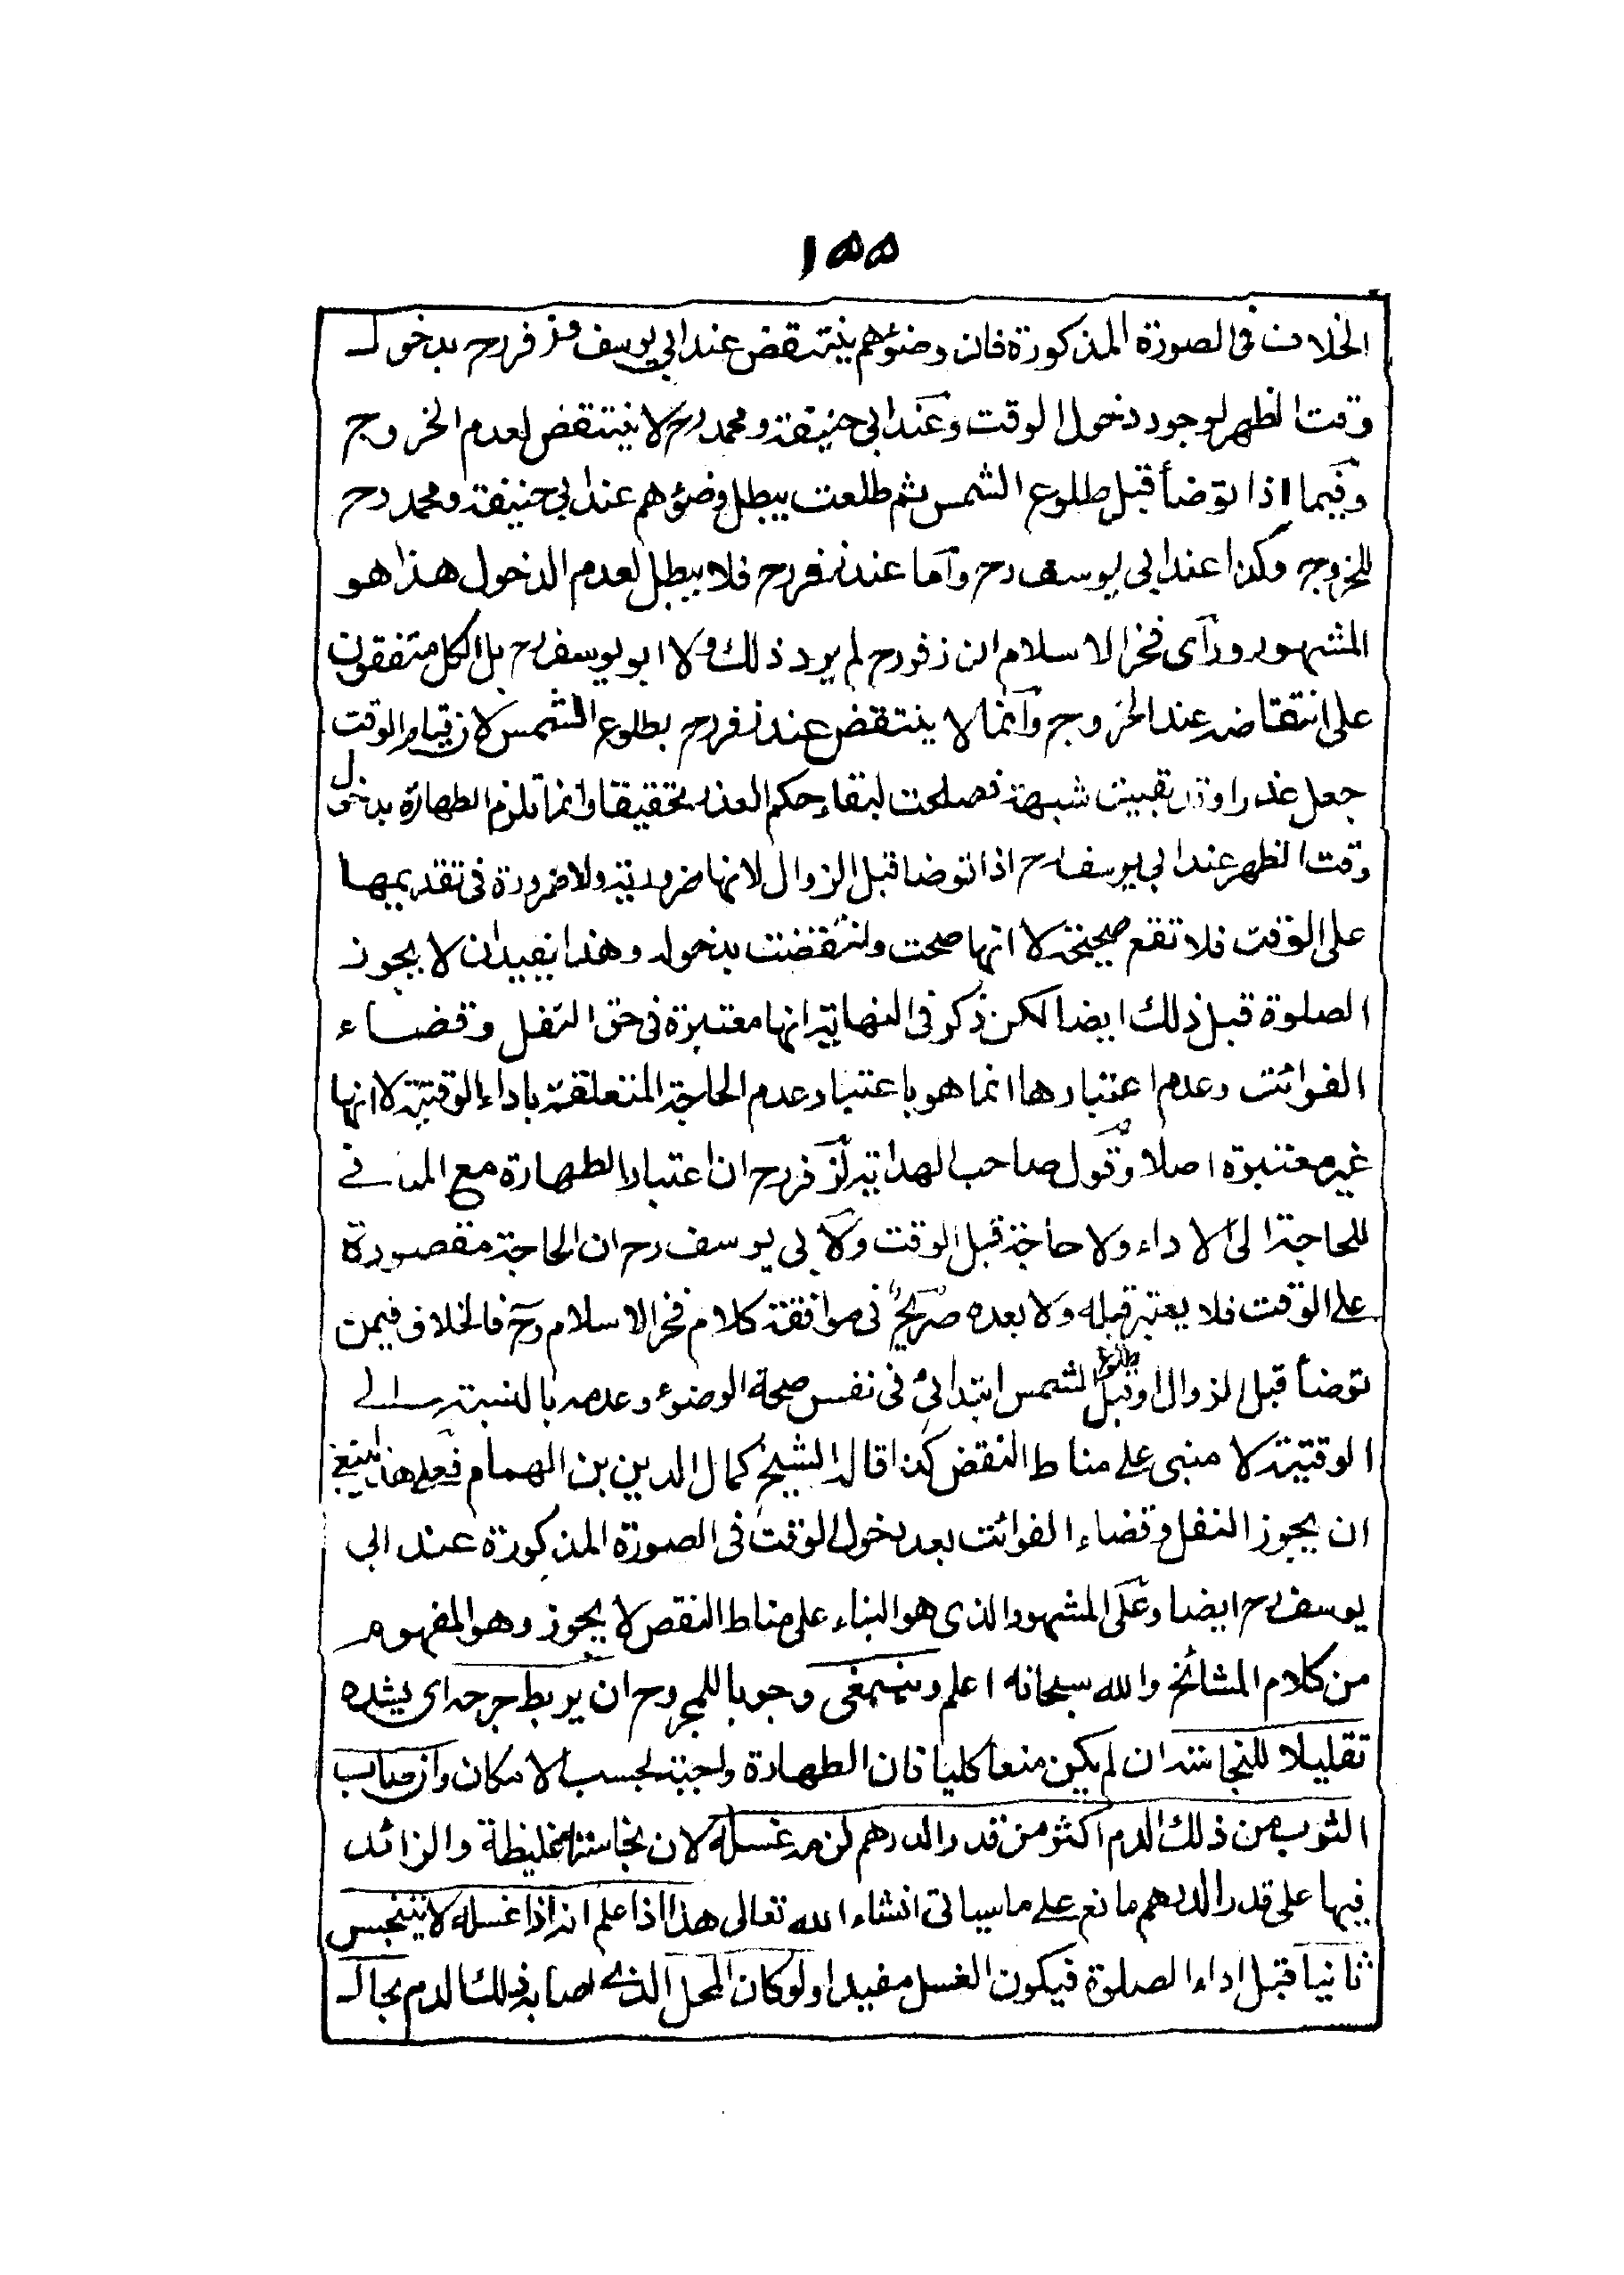 ١٥٥
الخلاف فى الصورة المذكورة فان وضوئهم ينتقض عند ابى يوسف وزفر رح بدخول
وقت الظهر لوجود دخول الوقت وعند ابى حنيفة ومحمد رح لا ينتقض لعدم الخروج
وفيما اذا توضأ قبل طلوع الشمس ثم طلعت يبطل وضوءهم عند ابى حنيفة ومحمد رح
للخروج وكذا عند ابى يوسف رح واما عند زفر رح فلا يبطل لعدم الدخول هذا هو
المشهور ورأى فخر الاسلام ان زفر رح لم يرد ذلك ولا ابو يوسف رح بل الكل متفقون
على انتقاضه عند الخروج وانما لا ينتقض عند زفر رح بطلوع الشمس لان قيام الوقت
جعل عذرا وقد بقيت شبهة فصلحت لبقاء حكم العذر تحقيقا وانما تلزم الطهارة بدخول
وقت الظهر عند ابى يوسف رح اذا توضا قبل الزوال لانها ضرورية ولا ضرورة فى تقديمها
على الوقت فلا تقع صحيحة لا انها صحت وانتقضت بدخوله وهذا يفيد ان لا يجوز
الصلوة قبل ذلك ايضا لكن ذكر فى النهاية انها معتبرة فى حق النفل وقضاء
الفوائت وعدم اعتبارها انما هو باعتبار عدم الحاجة المتعلقة باداء الوقتية لا انها
غير معتبرة اصلا وقول صاحب الهداية لزفر رح ان اعتبار الطهارة مع المنافى
للحاجة الى الاداء ولا حاجة قبل الوقت ولابى يوسف رح ان الحاجة مقصورة
على الوقت فلا يعتبر قبله ولا بعده صريح فى موافقة كلام فخر الاسلام رح فالخلاف فيمن
توضأ قبل الزوال او قبل طلوع الشمس ابتدائى فى نفس صحة الوضوء وعدمه بالنسبة الى
الوقتية لا مبنى على مناط النقض كذا قاله الشيخ كمال الدين بن الهمام فعلى هذا ينبغى
ان يجوز النفل وقضاء الفوائت بعد دخول الوقت فى الصورة المذكورة عند ابى
يوسف رح ايضا وعلى المشهور الذى هو البناء على مناط النقض لا يجوز وهو المفهوم
من كلام المشائخ والله سبحانه اعلم وينبغى وجوبا للمجروح ان يربط جرحه اى يشده
تقليلا للنجاسة ان لم يكن منعا كليا فان الطهارة واجبة بحسب الامكان وان اصاب
الثوب من ذلك الدم اكثر من قدر الدرهم لزمه غسله لان نجاسته غليظة والزائد
فيها على قدر الدرهم مانع على ما سياتى انشاء الله تعالى هذا اذا علم انه اذا غسله لا يتنجس
ثانيا قبل اداء الصلوة فيكون الغسل مفيدا ولو كان المحل الذى اصابه ذلك الدم بحال